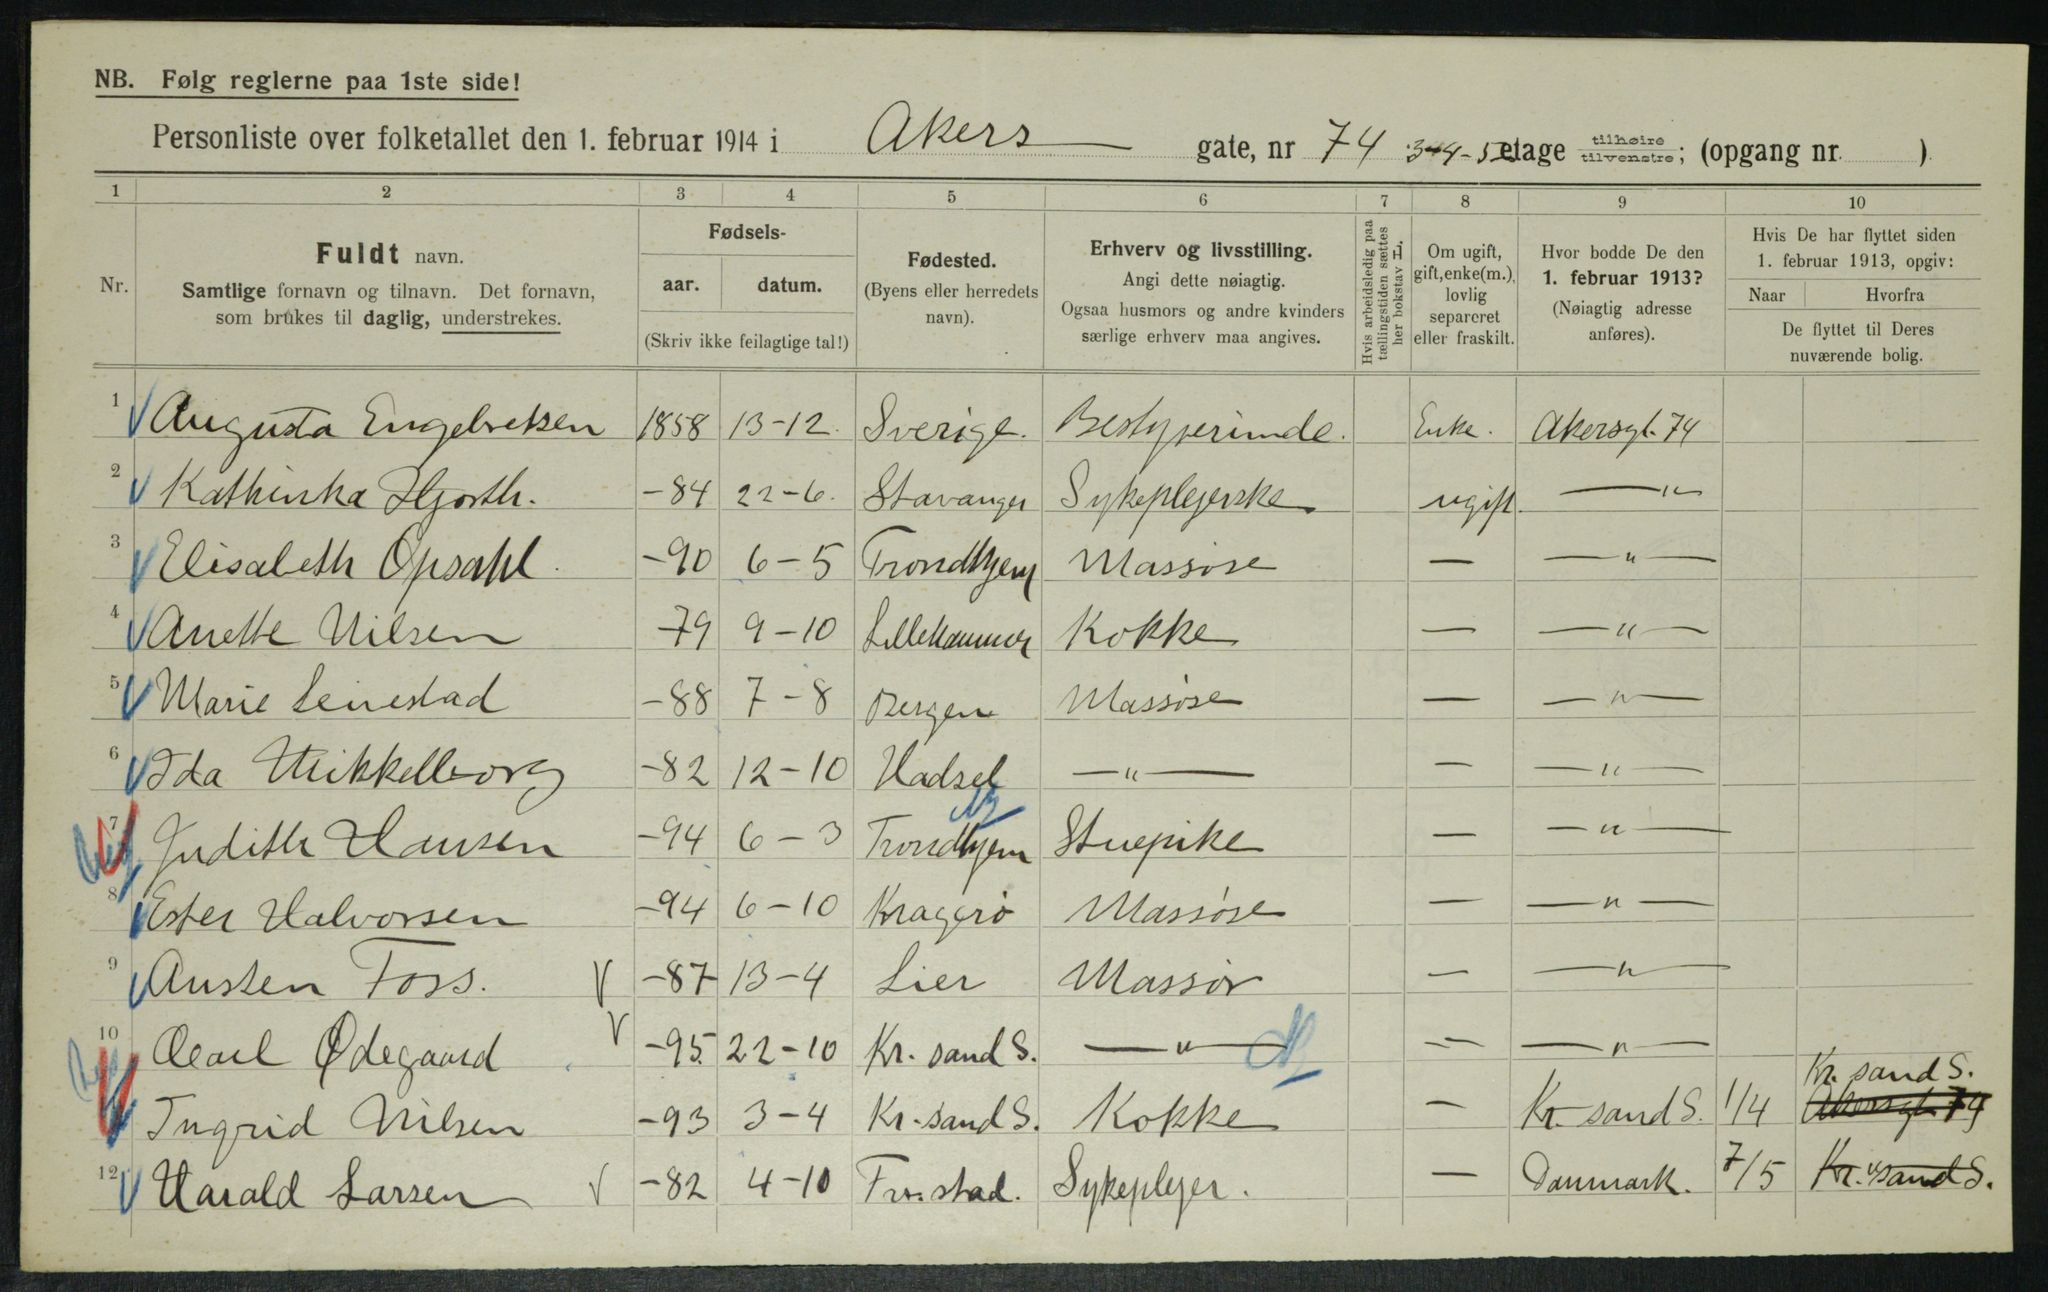 NB. Følg reglerne paa 1ste side!
Personliste over folketallet den 1. februar 1914 i Akers gate, nr 74 3-4-5 etage tilhøire tilvenstre; (opgang nr. )
1 2 3 4 5 6 7 8 9 10
Nr.
Fuldt navn.
Samtlige fornavn og tilnavn. Det fornavn,
som brukes til daglig, understrekes.
Fødsels-
aar. datum.
(Skriv ikke feilagtige tal!)
Fødested.
(Byens eller herredets
navn).
Erhverv og livsstilling.
Angi dette nøiagtig.
Ogsaa husmors og andre kvinders
særlige erhverv maa angives.
Hvis arbeidsledig paa
tællingstiden sættes
her bokstav L.
Om ugift,
gift, enke(m.),
lovlig
separeret
eller fraskilt.
Hvor bodde De den
1. februar 1913?
(Nøiagtig adresse
anføres).
Hvis De har flyttet siden
1. februar 1913, opgiv:
Naar Hvorfra
De flyttet til Deres
nuværende bolig.
1 Augusta Engebretsen 1858 13-12. Sverige. Bestyrerinde. Enke. Akersgt. 74
2 Kathinka Hjorth. -84 22-6. Stavanger Sykeplejerske ugift. —"—
3 Elisabeth Opsahl. -90 6-5 Trondhjem Massøse — —"—
4 Anette Nilsen -79 9-10 Lillehammer Kokke — —"—
5 Marie Leinestad -88 7-8 Bergen Massøse — —"—
6 Ida Mikkelborg -82 12-10 Hadsel —"— — —"—
7 Judith Hansen -94 6-3 Trondhjem Stuepike — —"—
8 Ester Halvorsen -94 6-10 Kragerø Massøse — —"—
9 Austen Foss. -87 13-4 Lier Massør — —"—
10 Carl Ødegaard -95 22-10 Kr. sand S. —"— — —"—
Kr. sand S.
Ingrid Nilsen -93 3-4 Kr. sand S. Kokke — Kr. sand S. 1/4 Akersgt. 74
12 Harald Larsen -82 4-10 Fr. stad. Sykeplejer. — Danmark. 7/5 Kr. sand S.